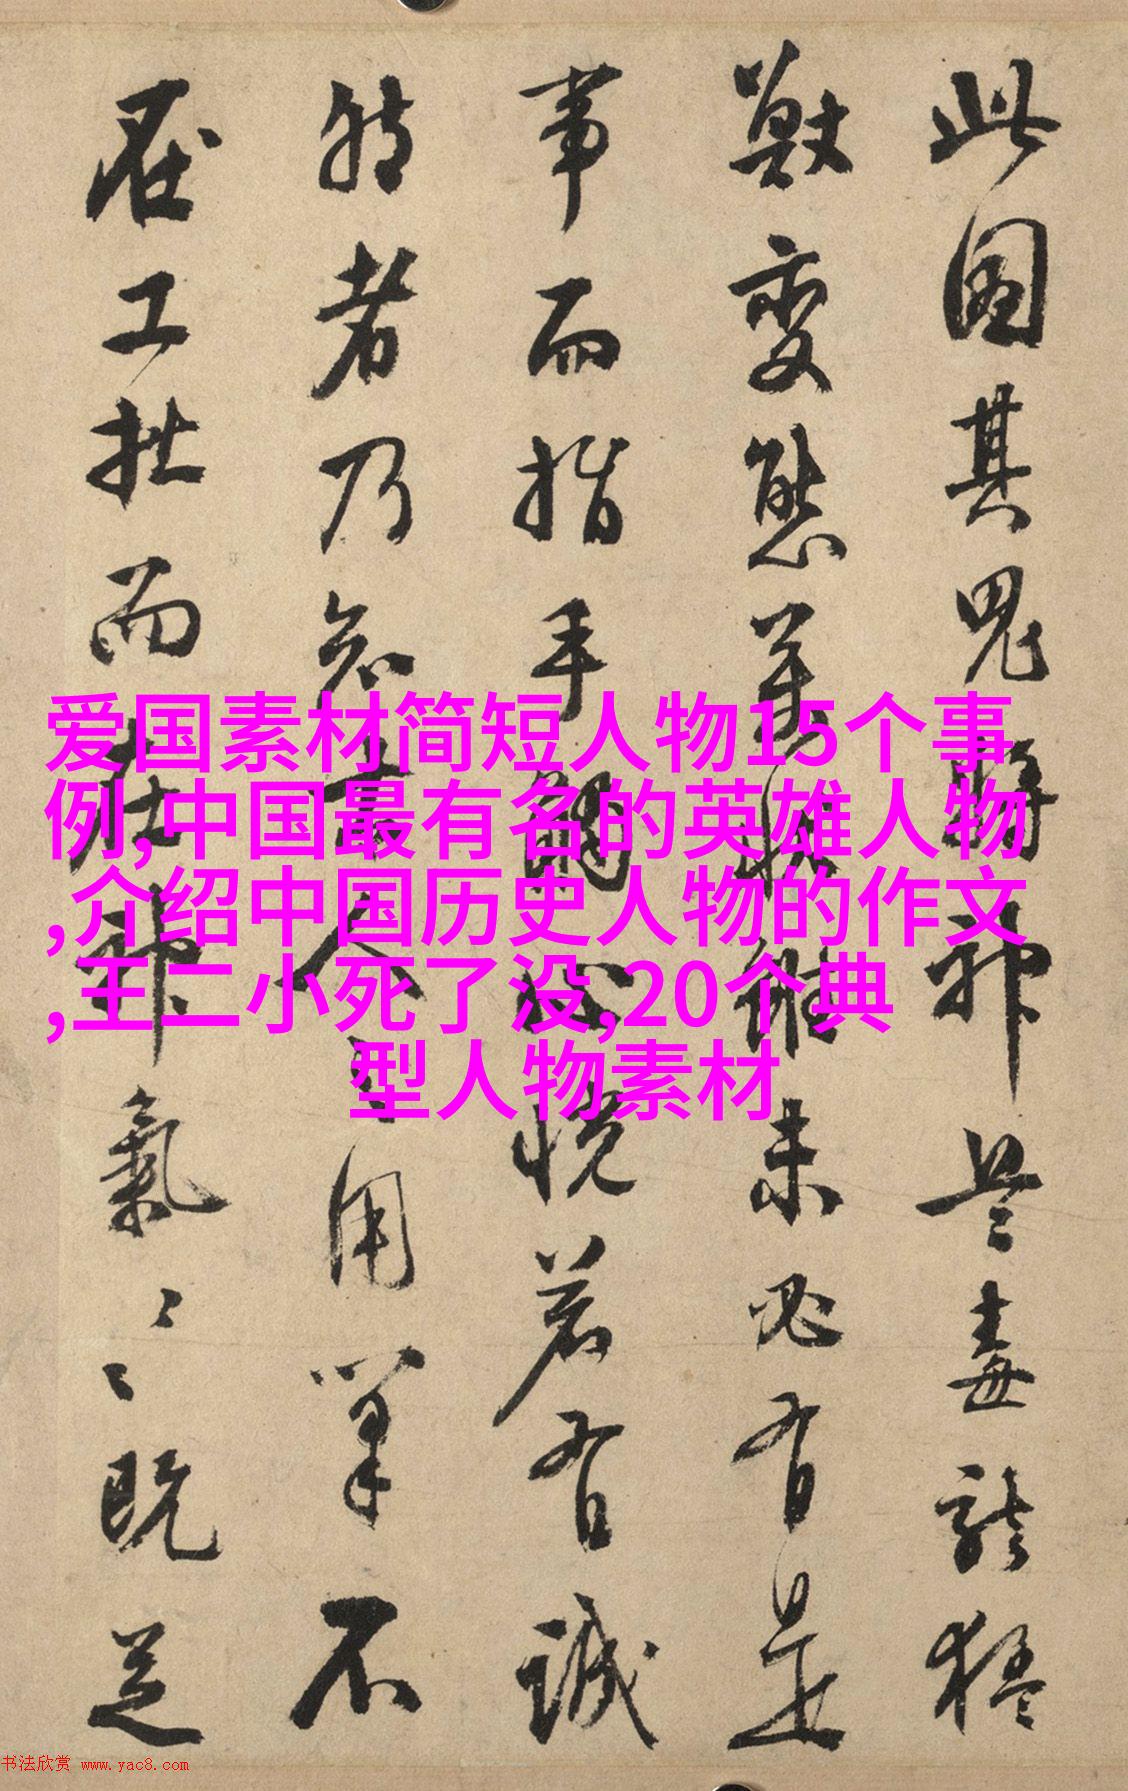 此図其鬼神兵毒龍猛
獸變態雖未必有是
事而指手恍若有誠
者乃知古人之用筆不
在工拙而在神氣〻〻既足
爱国素材简短人物15个事
例,中国最有名的英雄人物
,介绍中国历史人物的作文
,王二小死了没,20个典
型人物素材
书法欣赏 www.yac8.com